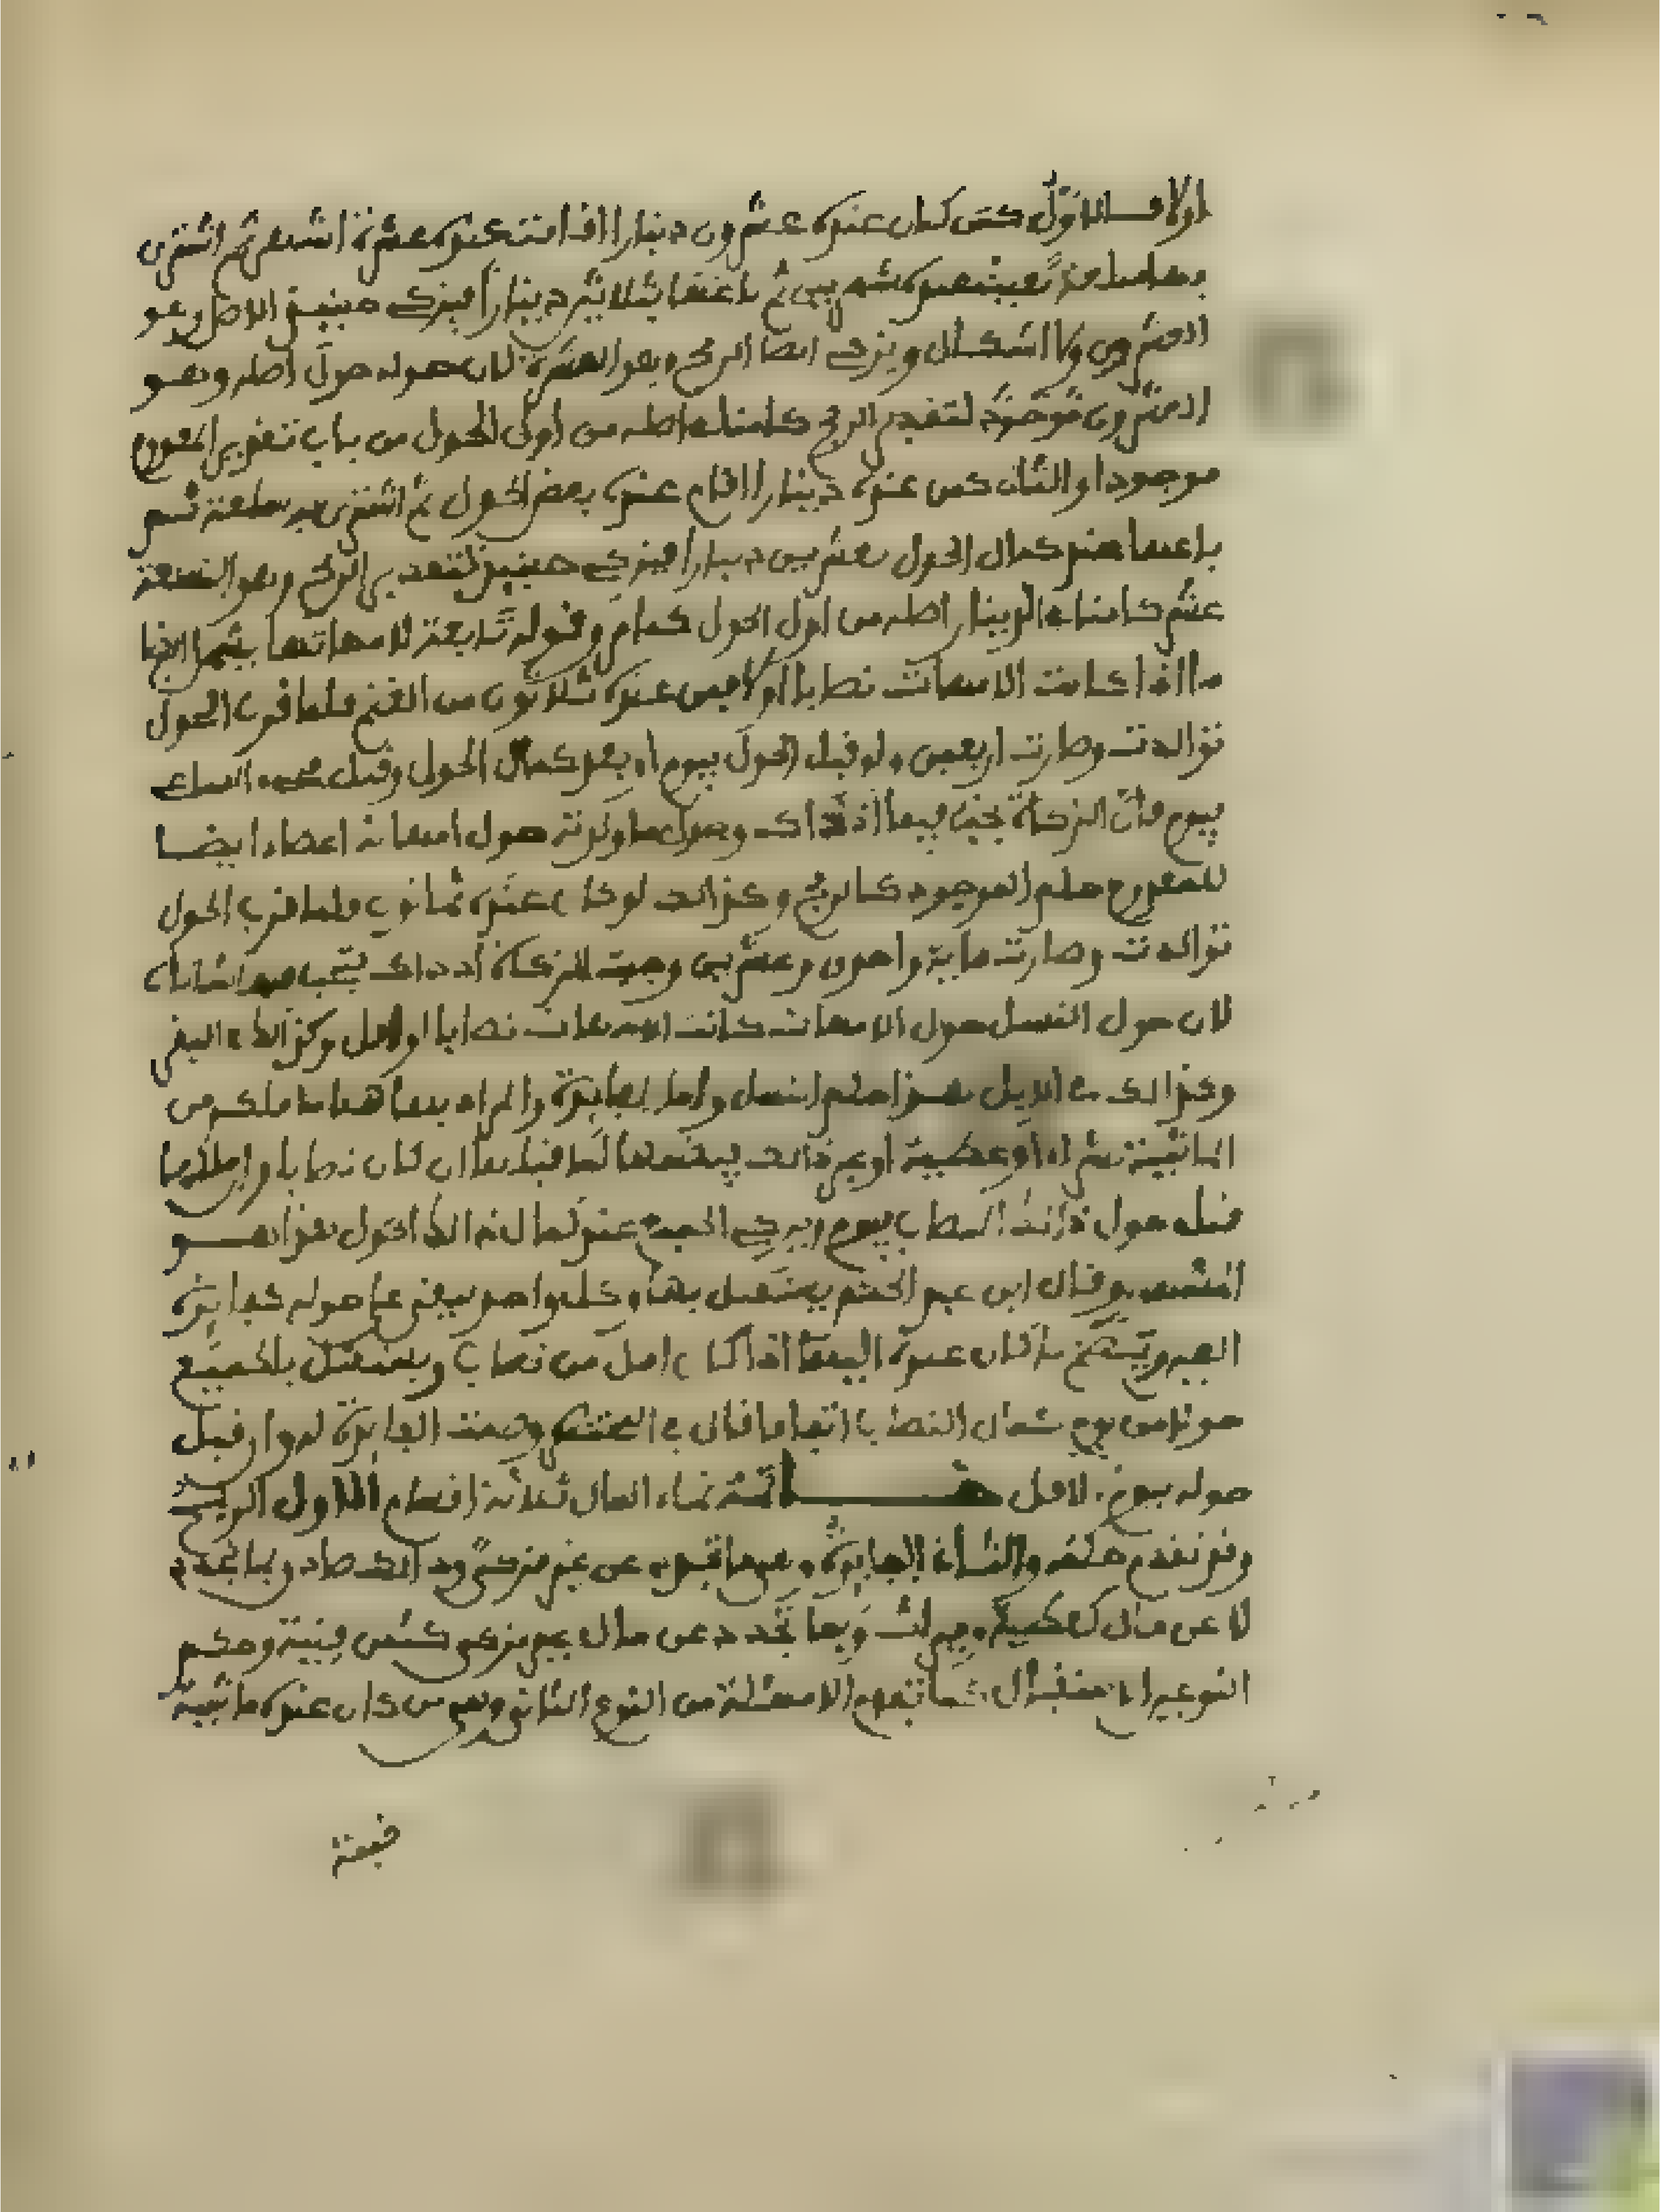 اولا فالاول كمن كان عنده عشرون دينارا اقامت عنده عشرة اشهر ثم اشترى
بها سلعة بقيت عنده شهرين ثم باعها بثلاثين دينارا فيزكى حينئذ الاصل وهو
العشرون ولا اشكال ويزكى ايضا الربح وهو العشرة لان حوله حول اصله وهو
العشرون فوجبت لتقدير الربح كامنا في اصله من اول الحول من باب تقدير المعدوم
موجودا والثاني كمن عنده دينارا اقام عنده بعض الحول ثم اشترى به سلعة ثم
باعها عند كمال الحول بعشرين دينارا فيزكى حينئذ لتقدير الربح وهو التسعة
عشر كامنا في الدينار اصله من اول الحول كما مر وقوله تابعة لامهاتها يشمل ايضا
ما اذا كانت الامهات نصابا او لا فمن عنده ثلاثون من الغنم فلما قرب الحول
توالدت وصارت اربعين ولو قبل الحول بيوم او بعد كمال الحول وقبل مجيء الساعي
بيوم فان الزكاة تجب فيها اذ ذاك وحول ما ولدته حول امهاته اعطاء ايضا
للمعدوم حكم الموجود كالربح وكذلك لو كان عنده ثمانون فلما قرب الحول
توالدت وصارت ماية واحدى وعشرين وجبت الزكاة اذ ذاك فتجب فيه شاتان
لان حول النسل حول الامهات كانت الامهات نصابا او اقل وكذلك في البقر
وكذلك في الابل هذا حكم النسل واما الفايدة والمراد بها هنا ما ملك من
الماشية بشراء او عطية او غير ذلك فيضمها لما قبلها ان كان نصابا وان ملكها
قبل حول ذلك النصاب بيوم ويزكى الجميع عند كمال ذلك الحول هذا هو
المشهور وقال ابن عبد الحكم يستقبل بها وكل واحد يبقى على حوله كفايدة
العين وتضم ما كان عنده اليها اذا كان اقل من نصاب ويستقبل بالجميع
حولا من يوم كمال النصاب اتفاقا قال في المختصر وضمت الفايدة له وان قبل
حوله بيوم لا لاقل خاتمة نماء المال ثلاثة اقسام الاول الربح
وقد تقدم حكمه والثاني الفايدة وهي ما تجدد عن غير مزكى وذلك صادق بما تجدد
لا عن مال كعطية وميراث وبما تجدد عن مال غير مزكى كثمن قنية وحكم
النوعين الاستقبال كما تقدم الا مسئلة من النوع الثاني وهي من كان عنده ماشية